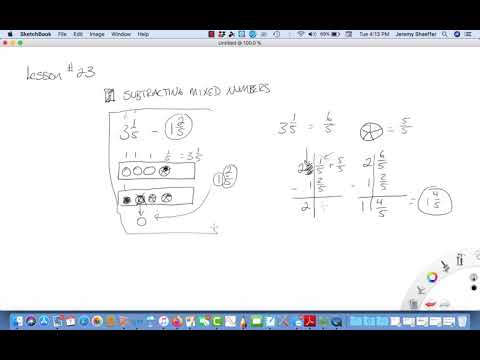 SketchBook File Edit Image Window Help
69% Tue 4:13 PM Jeremy Shaeffer
Untitled @ 100.0 %
Lesson # 23
SUBTRACTING MIXED NUMBERS
3 1/5 - 1 2/5
1 1 1 1/5 = 3 1/5
1 2/5
3 1/5 = 6/5
= 5/5
2 1/5 + 5/5
- 1 2/5
2
2 6/5
- 1 2/5
1 4/5 = 1 4/5